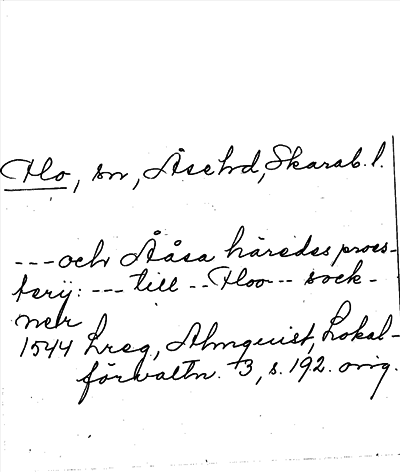 Flo, sn, Åse hd, Skarab. l.
---och Ååsa häredes proes-
terij: --- till -- Floo --- sock-
ner
1544 Lreg, Almquist, Lokal-
förvaltn. 3, s. 192. orig.